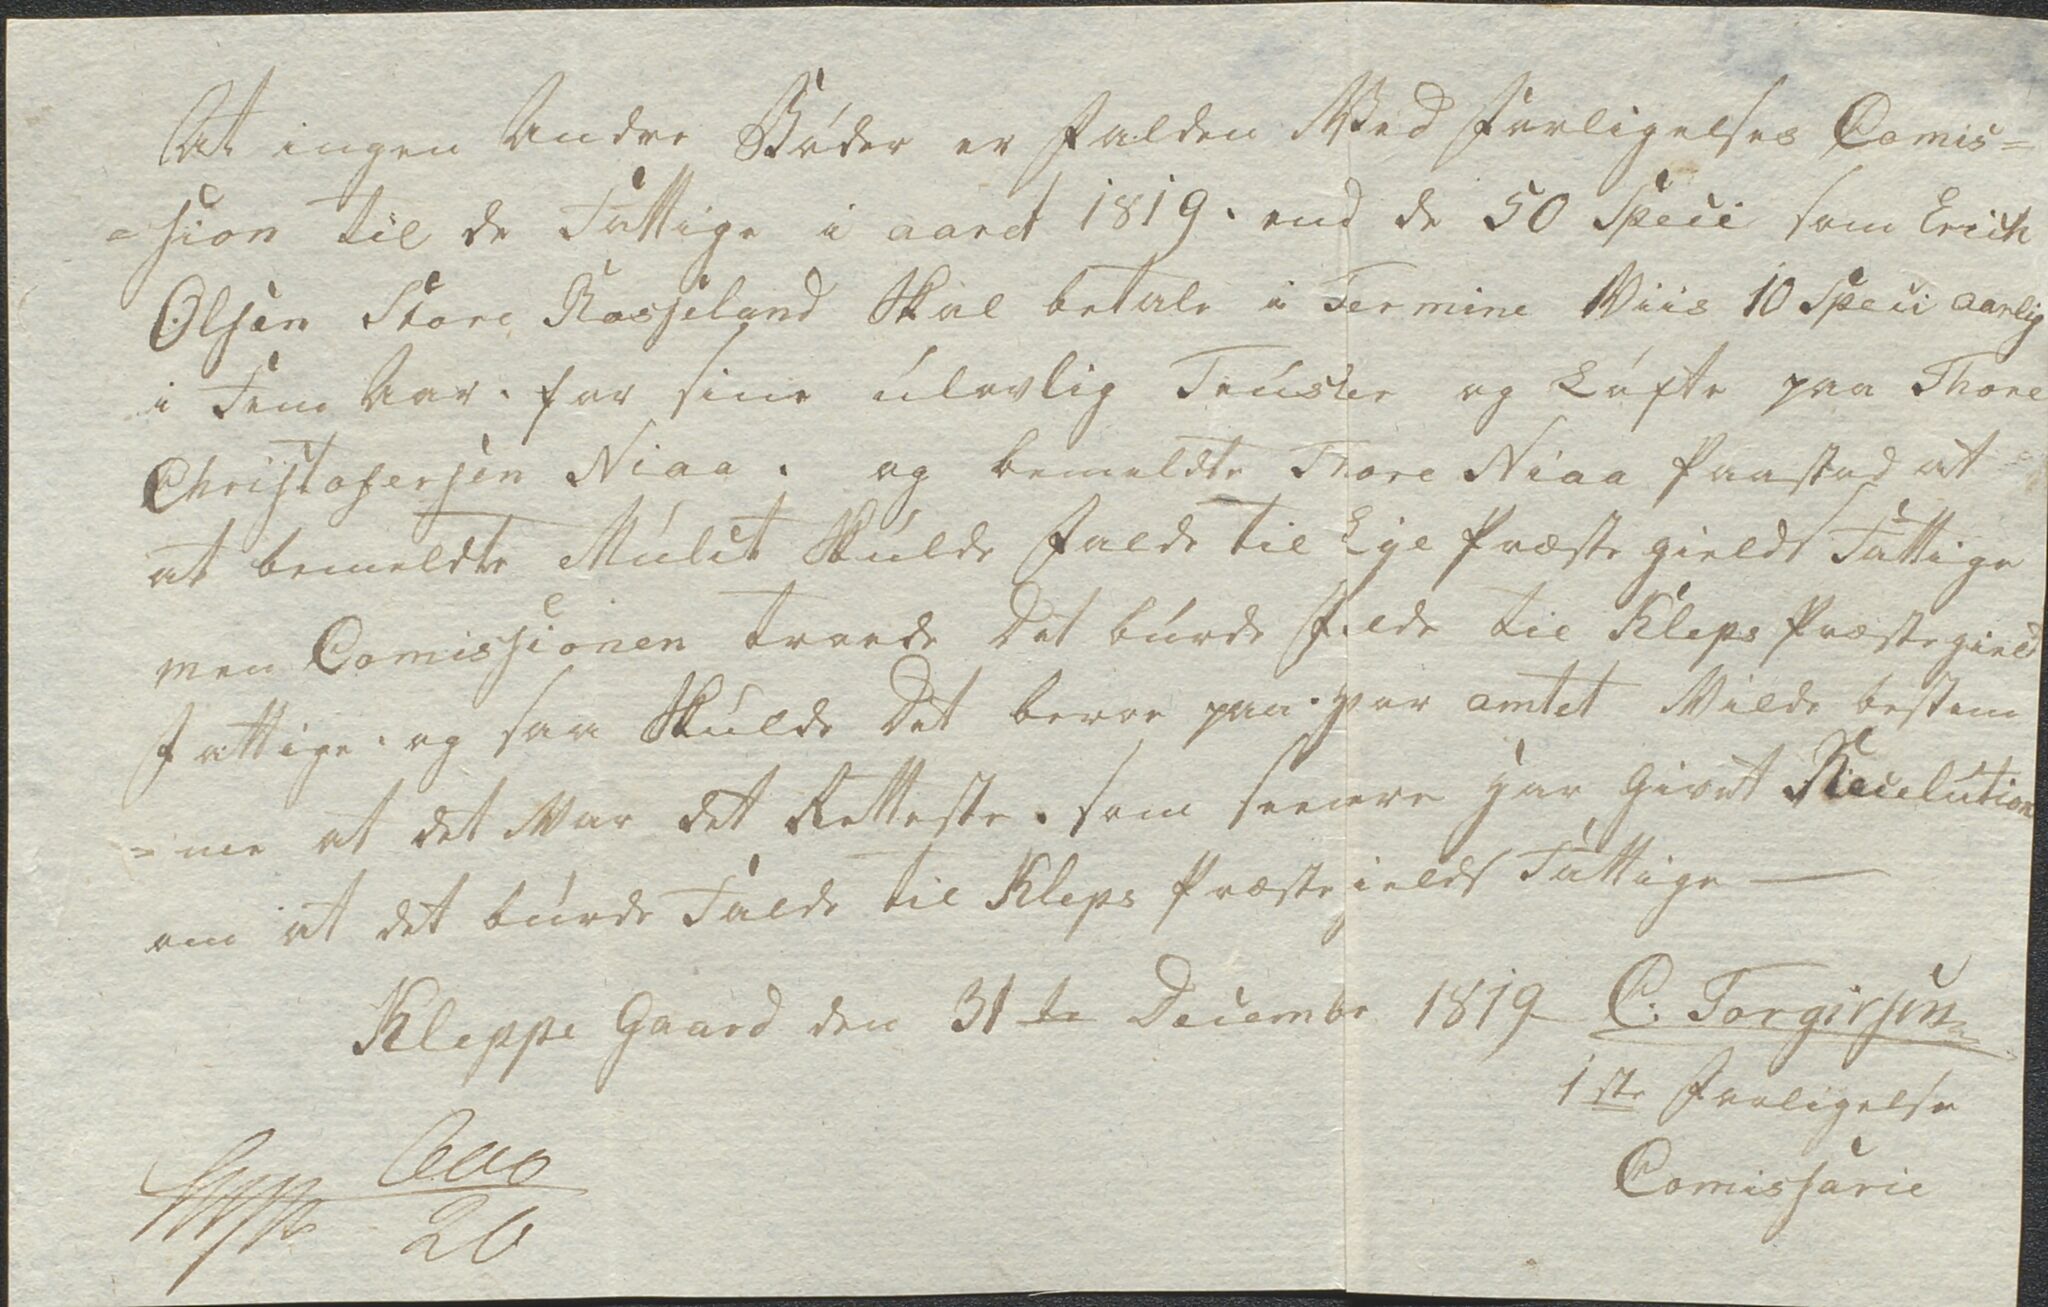 At ingen Andre Bøder er falden Ved Forligelses Comis=
=sion til de Fattige i aaret 1819. end de 50 Speci som Erich
Olsen Store Rosseland Skal betale i Termine Viis 10 Speci aarlig
i Fem Aar. for sine ulovlig Trusler og Løfte paa Thore
Christofersen Niaa. og bemeldte Thore Niaa paastod at
at bemeldte Mulct Skulde Falde til Lye Præstegields Fattige
men Comissionen troede Det burde falde til Kleps Præstegield
fattige. og saa Skulde Det beroe paa. hvor amtet Vilde bestem
=me at det Var det Retteste. som senere har Givet Reculution
om at det burde Falde til Kleps Præstegields Fattige —
Kleppe Gaard den 31te Decembr 1819 C. Torgirsen
1ste Forligelse
Comissarie
20